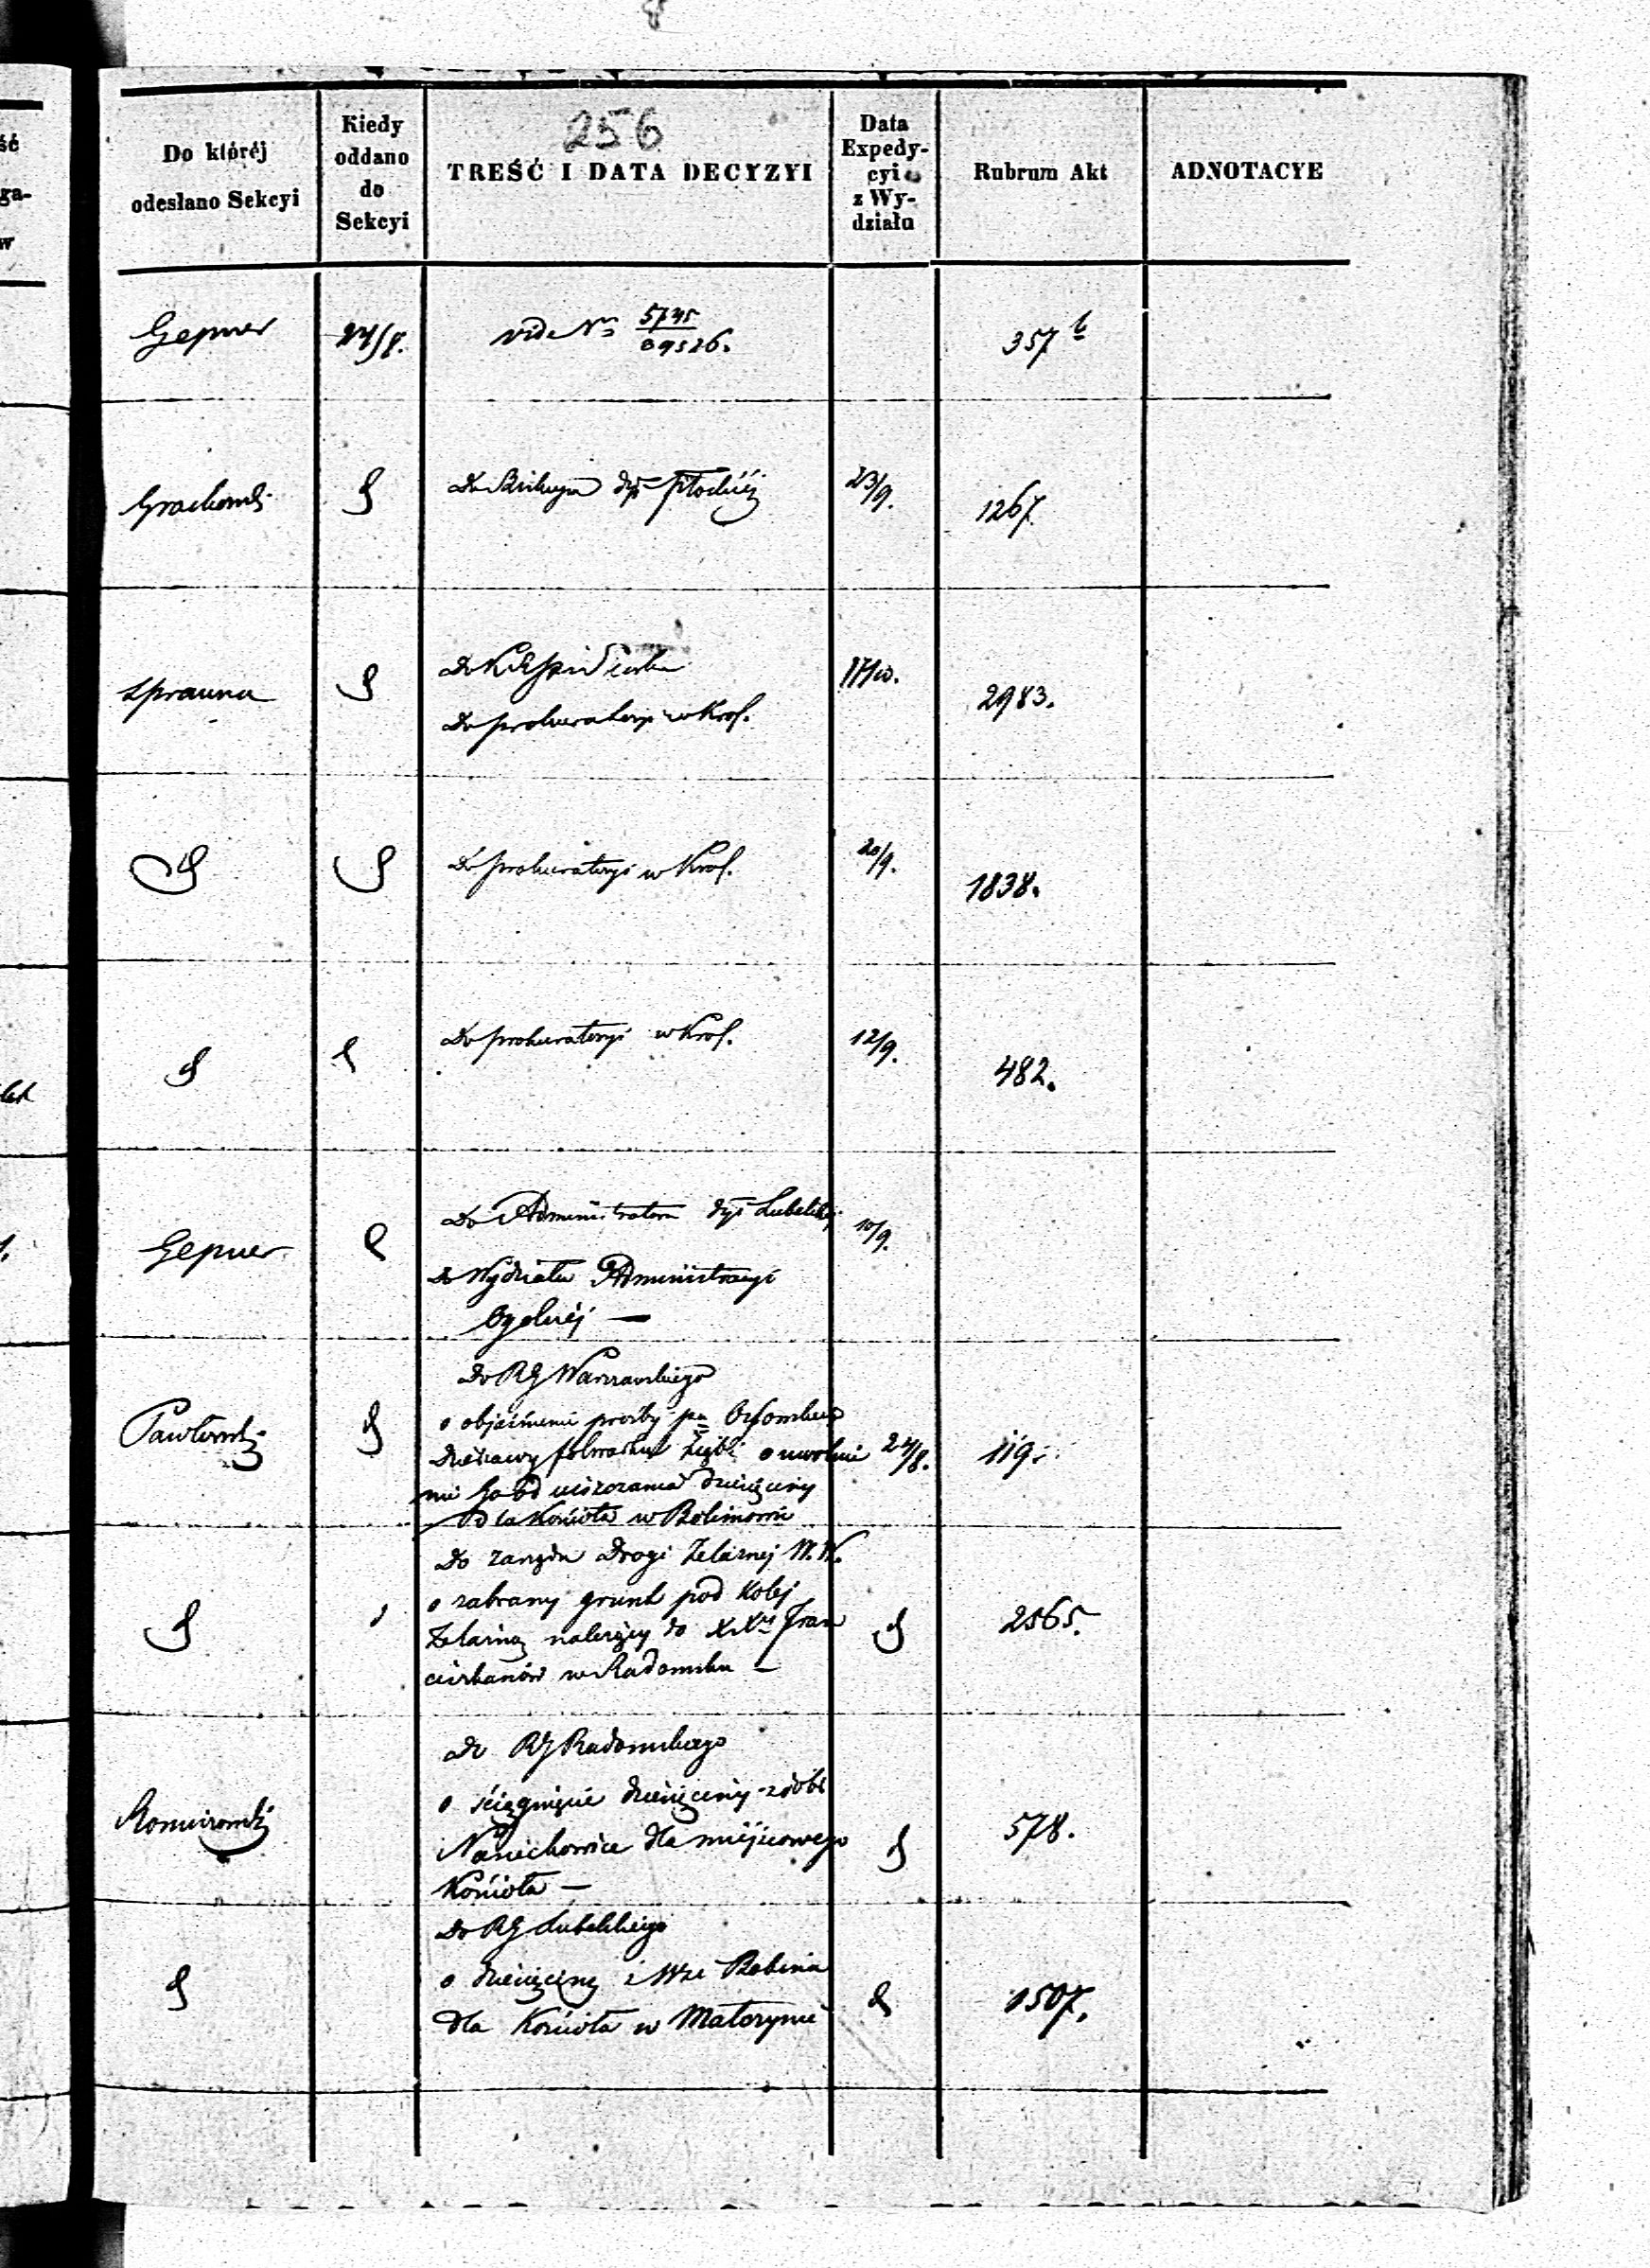 256
Do któréj
odesłano Sekcyi
Kiedy
oddano
do
Sekcyi
TREŚĆ I DATA DECYZYI
Data
Expedy-
cyi
z Wy-
działu
Rubrum Akt
ADNOTACYE
Gepner
24/8.
vide N
5745
357 b
Do Biskupa dyi Płockiéj
23/9.
1267.
Sprauna
Do
Do prokuratoryi w Król.
17/10.
2983.
Do prokuratoryi w Król.
20/9.
1838.
Do prokuratoryi w Król.
12/9.
482.
Gepner
Do Administratora dyi Lubelskiej
10/9.
do Wydziału Administracyi
Ogolnéj —
Do RG Warszawskiego
Pawłowski
o objaśnienie prośby pa
Dzierżawcy folwarku o uwolnie
24/8.
119.
nie Go od uiszczania dziesięciny
dla Kościoła w Bolimowie
Do Zarządu Drogi Żelaznej W. W.
o zabrany grunt pod Kolej
Żelazną należący do XX Fran
2565.
ciszkanów w Radomsku —
Do RG Radomskiego
o ściągnięcie dziesięciny z dóbr
dla miejscowego
578.
Kościoła —
Do RG Lubelskiego
o dziesięcinę z Wsi
dla Kościoła w
1507.